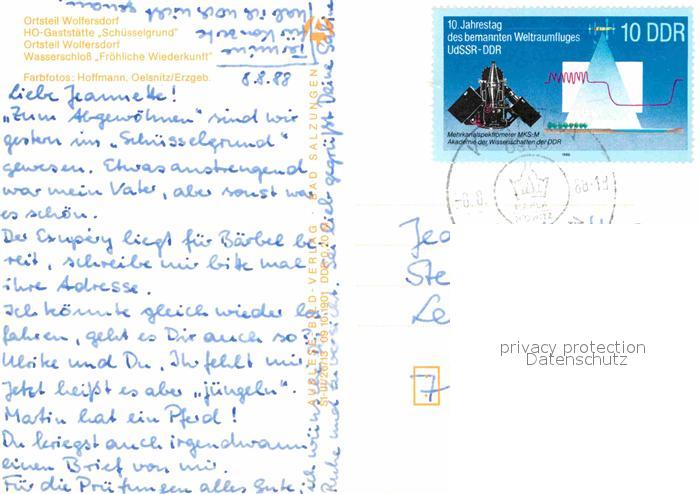 Ortsteil Wolfersdorf
HO-Gaststätte „Schüsselgrund"
Ortsteil Wolfersdorf
Wasserschloß „Fröhliche Wiederkunft"
Farbfotos: Hoffmann, Oelsnitz/Erzgeb.
8.8.88
liebe Jeannette!
„Zum Abgewöhnen" sind wir
gestern im „Schüsselgrund"
gewesen. Etwas anstrengend
war mein Vater, aber sonst war
es schön.
Der Exupéry liegt für Bärbel be
reit, schreibe mir bitte mal
ihre Adresse.
Ich könnte gleich wieder los
fahren, geht es Dir auch so?
Ulrike und Du, Ihr fehlt mir.
Jetzt heißt es aber „jüngeln".
Matin hat ein Pferd!
Du kriegst auch irgendwann
einen Brief von mir.
Für die Prüfungen alles Gute,
ich wünsche
Ruhe und
lieb gegrüßt Deine
AUSLESE-BILD-VERLAG · BAD SALZUNGEN
10. Jahrestag
des bemannten Weltraumfluges
UdSSR-DDR
10 DDR
Mehrkanalspektrometer MKS-M
Akademie der Wissenschaften der DDR
1988
Jea
Ste
Le
7
privacy protection
Datenschutz